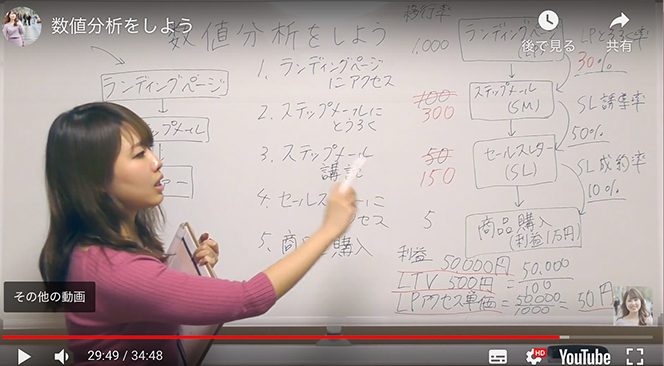 数値分析をしよう
後で見る
共有
数値分析をしよう
ランディングページ
ステップメール
1. ランディングページ
にアクセス
2. ステップメールに
とうろく
3. ステップメール
講読
4. セールスレターに
アクセス
5. 商品購入
移行率
1,000
100
300
50
150
5
ランディングページ
LPとうろく率
30%
ステップメール
(SM)
SL誘導率
50%
セールスレター
(SL)
SL成約率
10%
商品購入
(利益1万円)
利益 50,000円
LTV 500円 = 50,000/100
LPアクセス単価 = 50,000/1000 = 50円
その他の動画
29:49 / 34:48
HD
YouTube